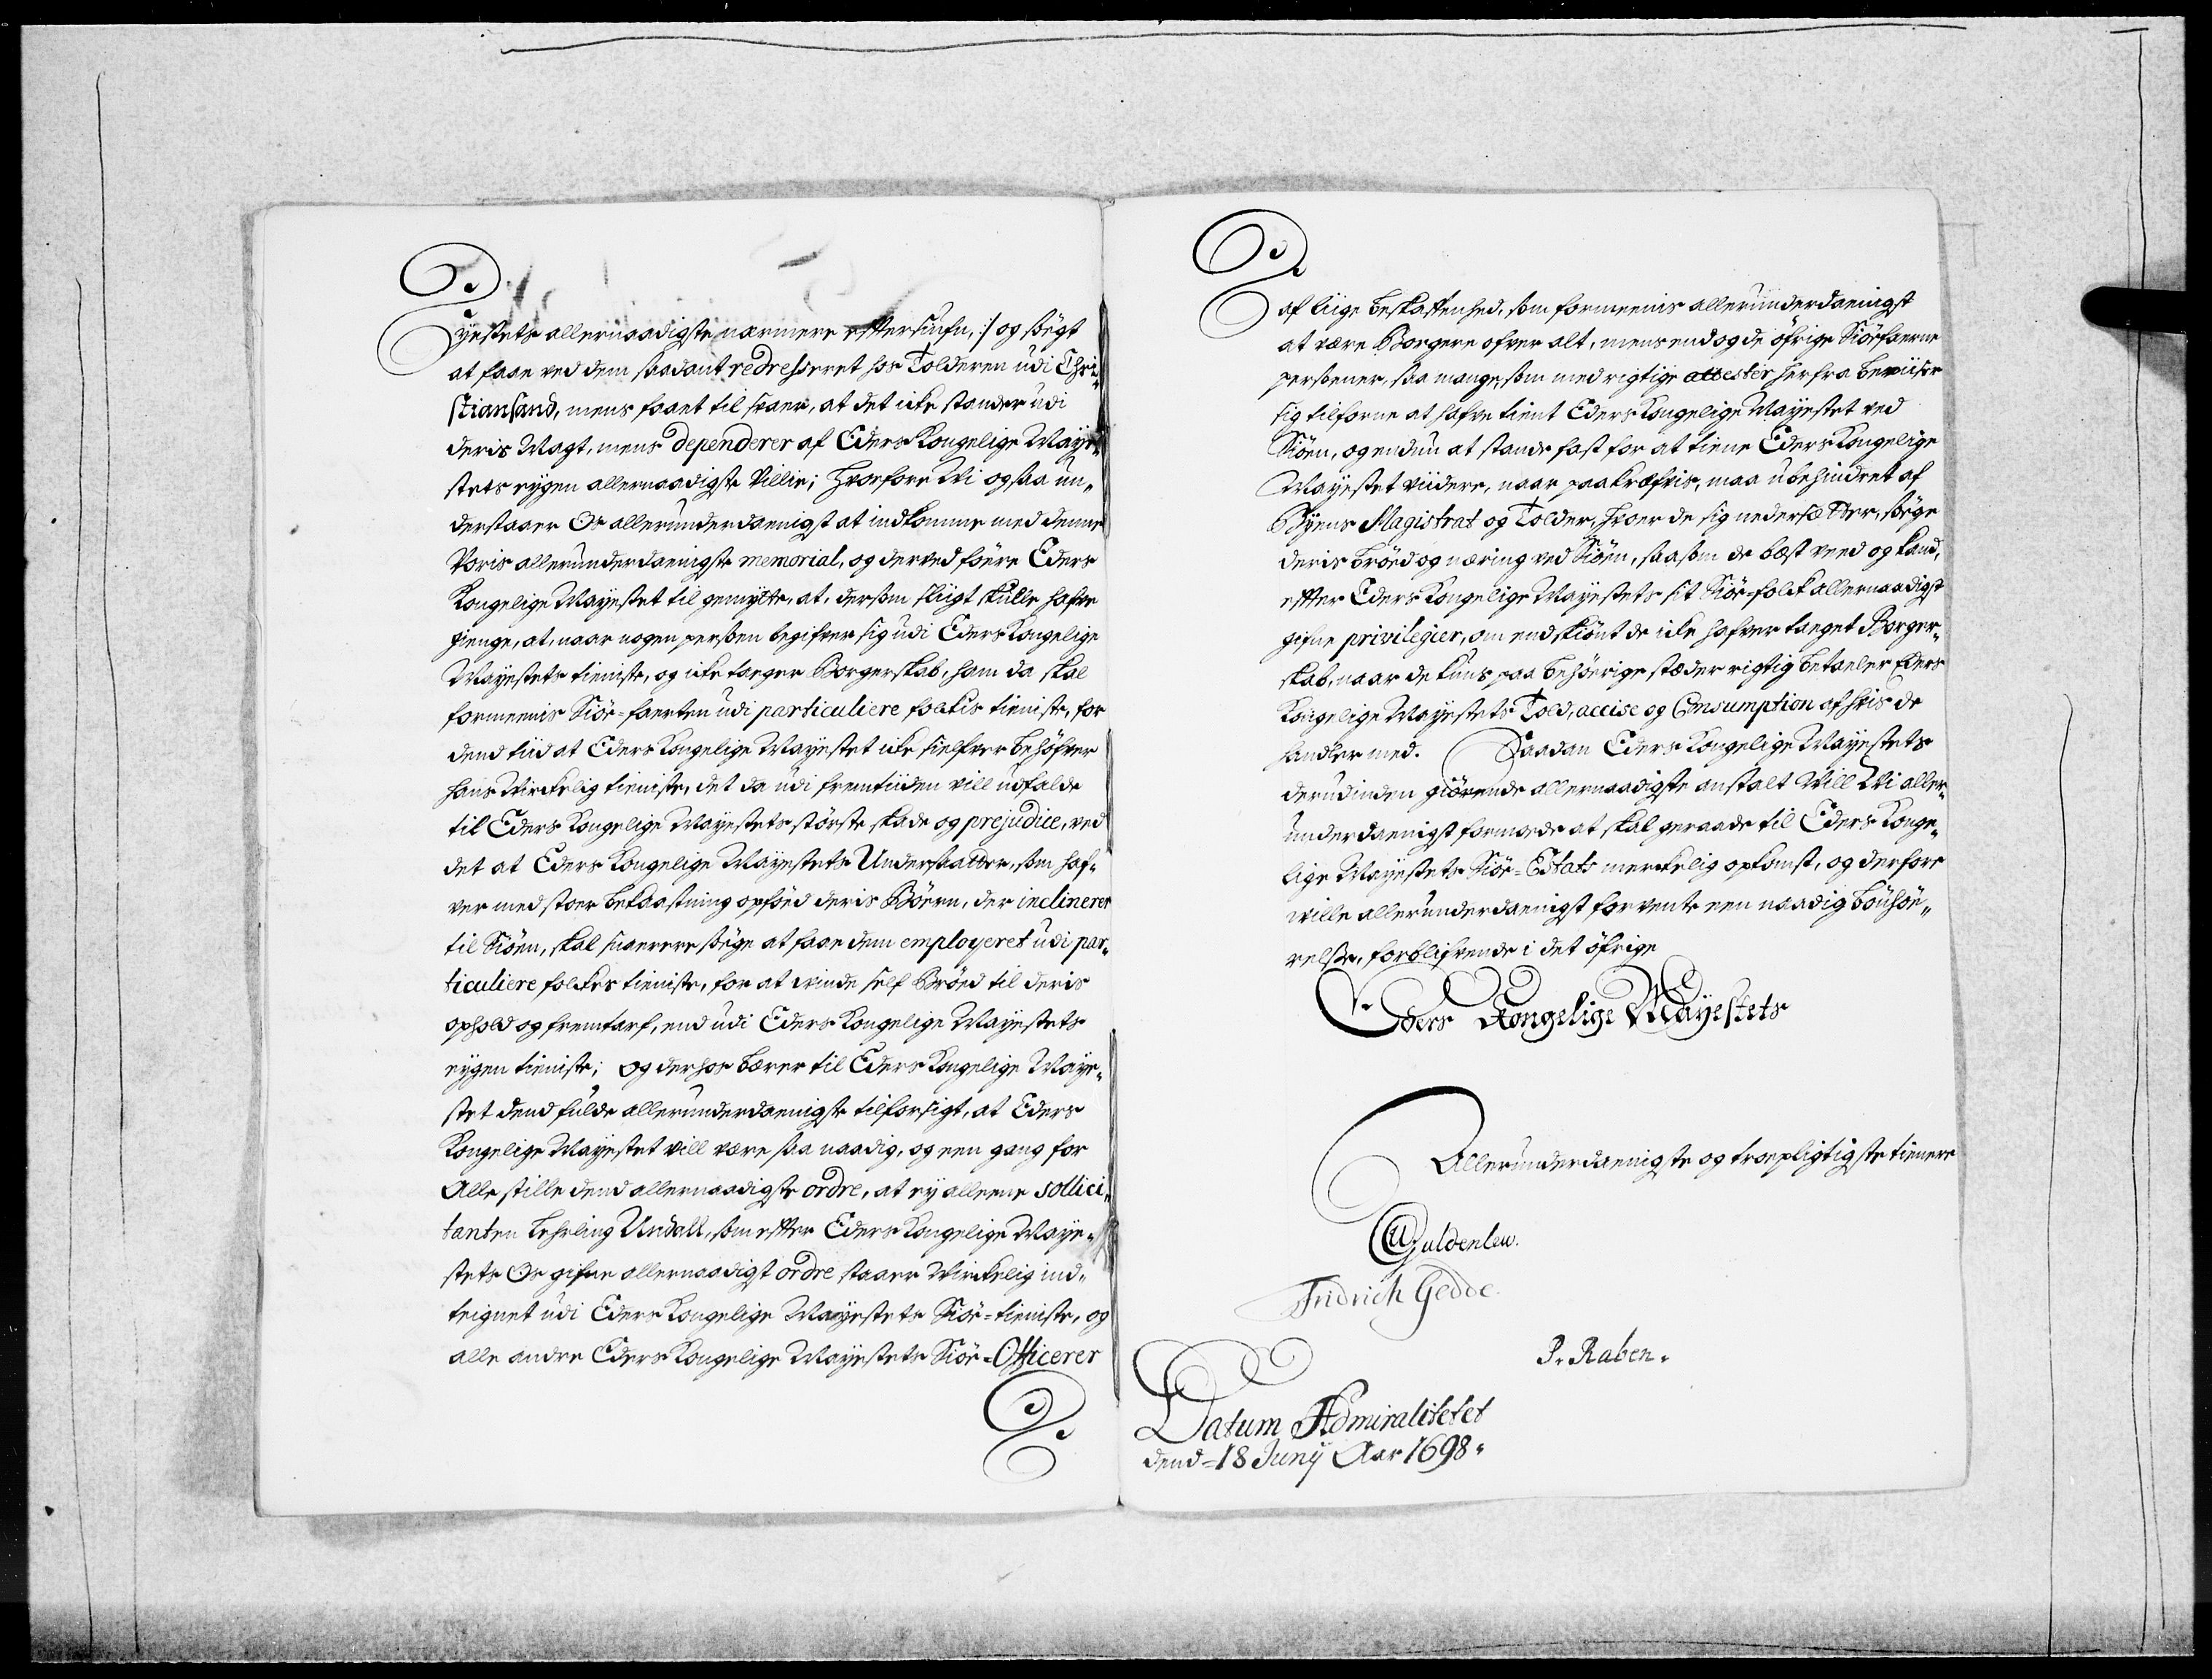 yestets allernaadigste nærmere efftersiufn, :/ og søgt
at faae ved dem saadant redresseret hos Tolderen udi Chri-
stiansand, mens faaet til svaer, at det icke stander udi
deris Magt, mens dependerer af Eders Kongelige Maye-
stets eygen allernaadigste Villie; Hvorfore Wi ogsaa un-
derstaaer Os allerunderdaenigst at indkomme med denne
Voris allerunderdaenigste memorial, og derved føere Eders
Kongelige Mayestet til gemytte, at, dersom sligt skulle hafve
gienge, at, naar nogen persoen begifver sig udi Eders Kongelige
Mayestets tieniste, og icke taeger Borgerskab, ham da skal
formeenis Siøe-faerten udi particuliere folckis tieniste, for
dend tiid at Eders Kongelige Mayestet icke sielfver behøfver
hans Wirckelig tieniste, det da udi fremtiiden vill udfalde
til Eders Kongelige Mayestets største skade og prejudice, ved
det at Eders Kongelige Mayestets Undersaatter, som haf-
ver med stoer bekaastning opføed deris Bøern, der inclinerer
til Siøen, skal snarere søge at faae dem employeret udi par-
ticuliere folckes tieniste, for at winde self Brøed til deris
ophold og fremtarf, end udi Eders Kongelige Mayestets
eygen tieniste; og derhos bærer til Eders Kongelige Maye-
stet dend fulde allerunderdaenigste tilforsigt, at Eders
Kongelige Mayestet vill være saa naadig, og een gang for
Alle stille dend allernaadigste ordre, at ey alleene sollici-
tanten Lehrling Undall, som effter Eders Kongelige Maye-
stets Os gifne allernaadigst ordre staaer Wirckelig ind-
teignet udi Eders Kongelige Mayestets Siøe-tieniste, og
alle andre Eders Kongelige Mayestets Siøe-Officerer
af liige beskaffenhed, som formeenis allerunderdaenigst
at være Borgere ofver alt, mens end og de øfrige Siøefaerne
persoener, saa mange, som med rigtige attester herfra beviiser
sig tilforne at hafve tient Eders Kongelige Mayestet ved
Siøen, og endnu at stande fast for at tiene Eders Kongelige
Mayestet viidere, naar paakræfvis, maa ubehindret af
Byens Magistrat og Tolder, hvoer de sig nedersætter, søge
deris brøed og næring ved Siøen, saasom de bæst veed og kand,
effter Eders Kongelige Mayestets sit Siøe-folck allernaadigst
gifne privilegier, om end skiønt de icke hafver taeget Borger-
skab, naar de kuns paa behøerige stæder rigtig betaeler Eders
Kongelige Mayestets Told, accise og Consumption af hvis de
handler med. Saadan Eders Kongelige Mayestets
derudinden giørende allernaadigste anstalt Will Wi aller-
underdaenigst formode at skal geraade til Eders Konge-
lige Mayestets Siøe-Estats merckelig opkomst, og derfore
wille allerunderdaenigst forvente een naadig bønhøe-
relse, forblifvende i det øfrige
Eders Kongelige Mayestets
Allerunderdaenigste og troepligtigste tienere
Guldenlew.
Fridrich Gedde.
P. Raben.
Datum Admiralitetet
dend 18 Juny Aar 1698.